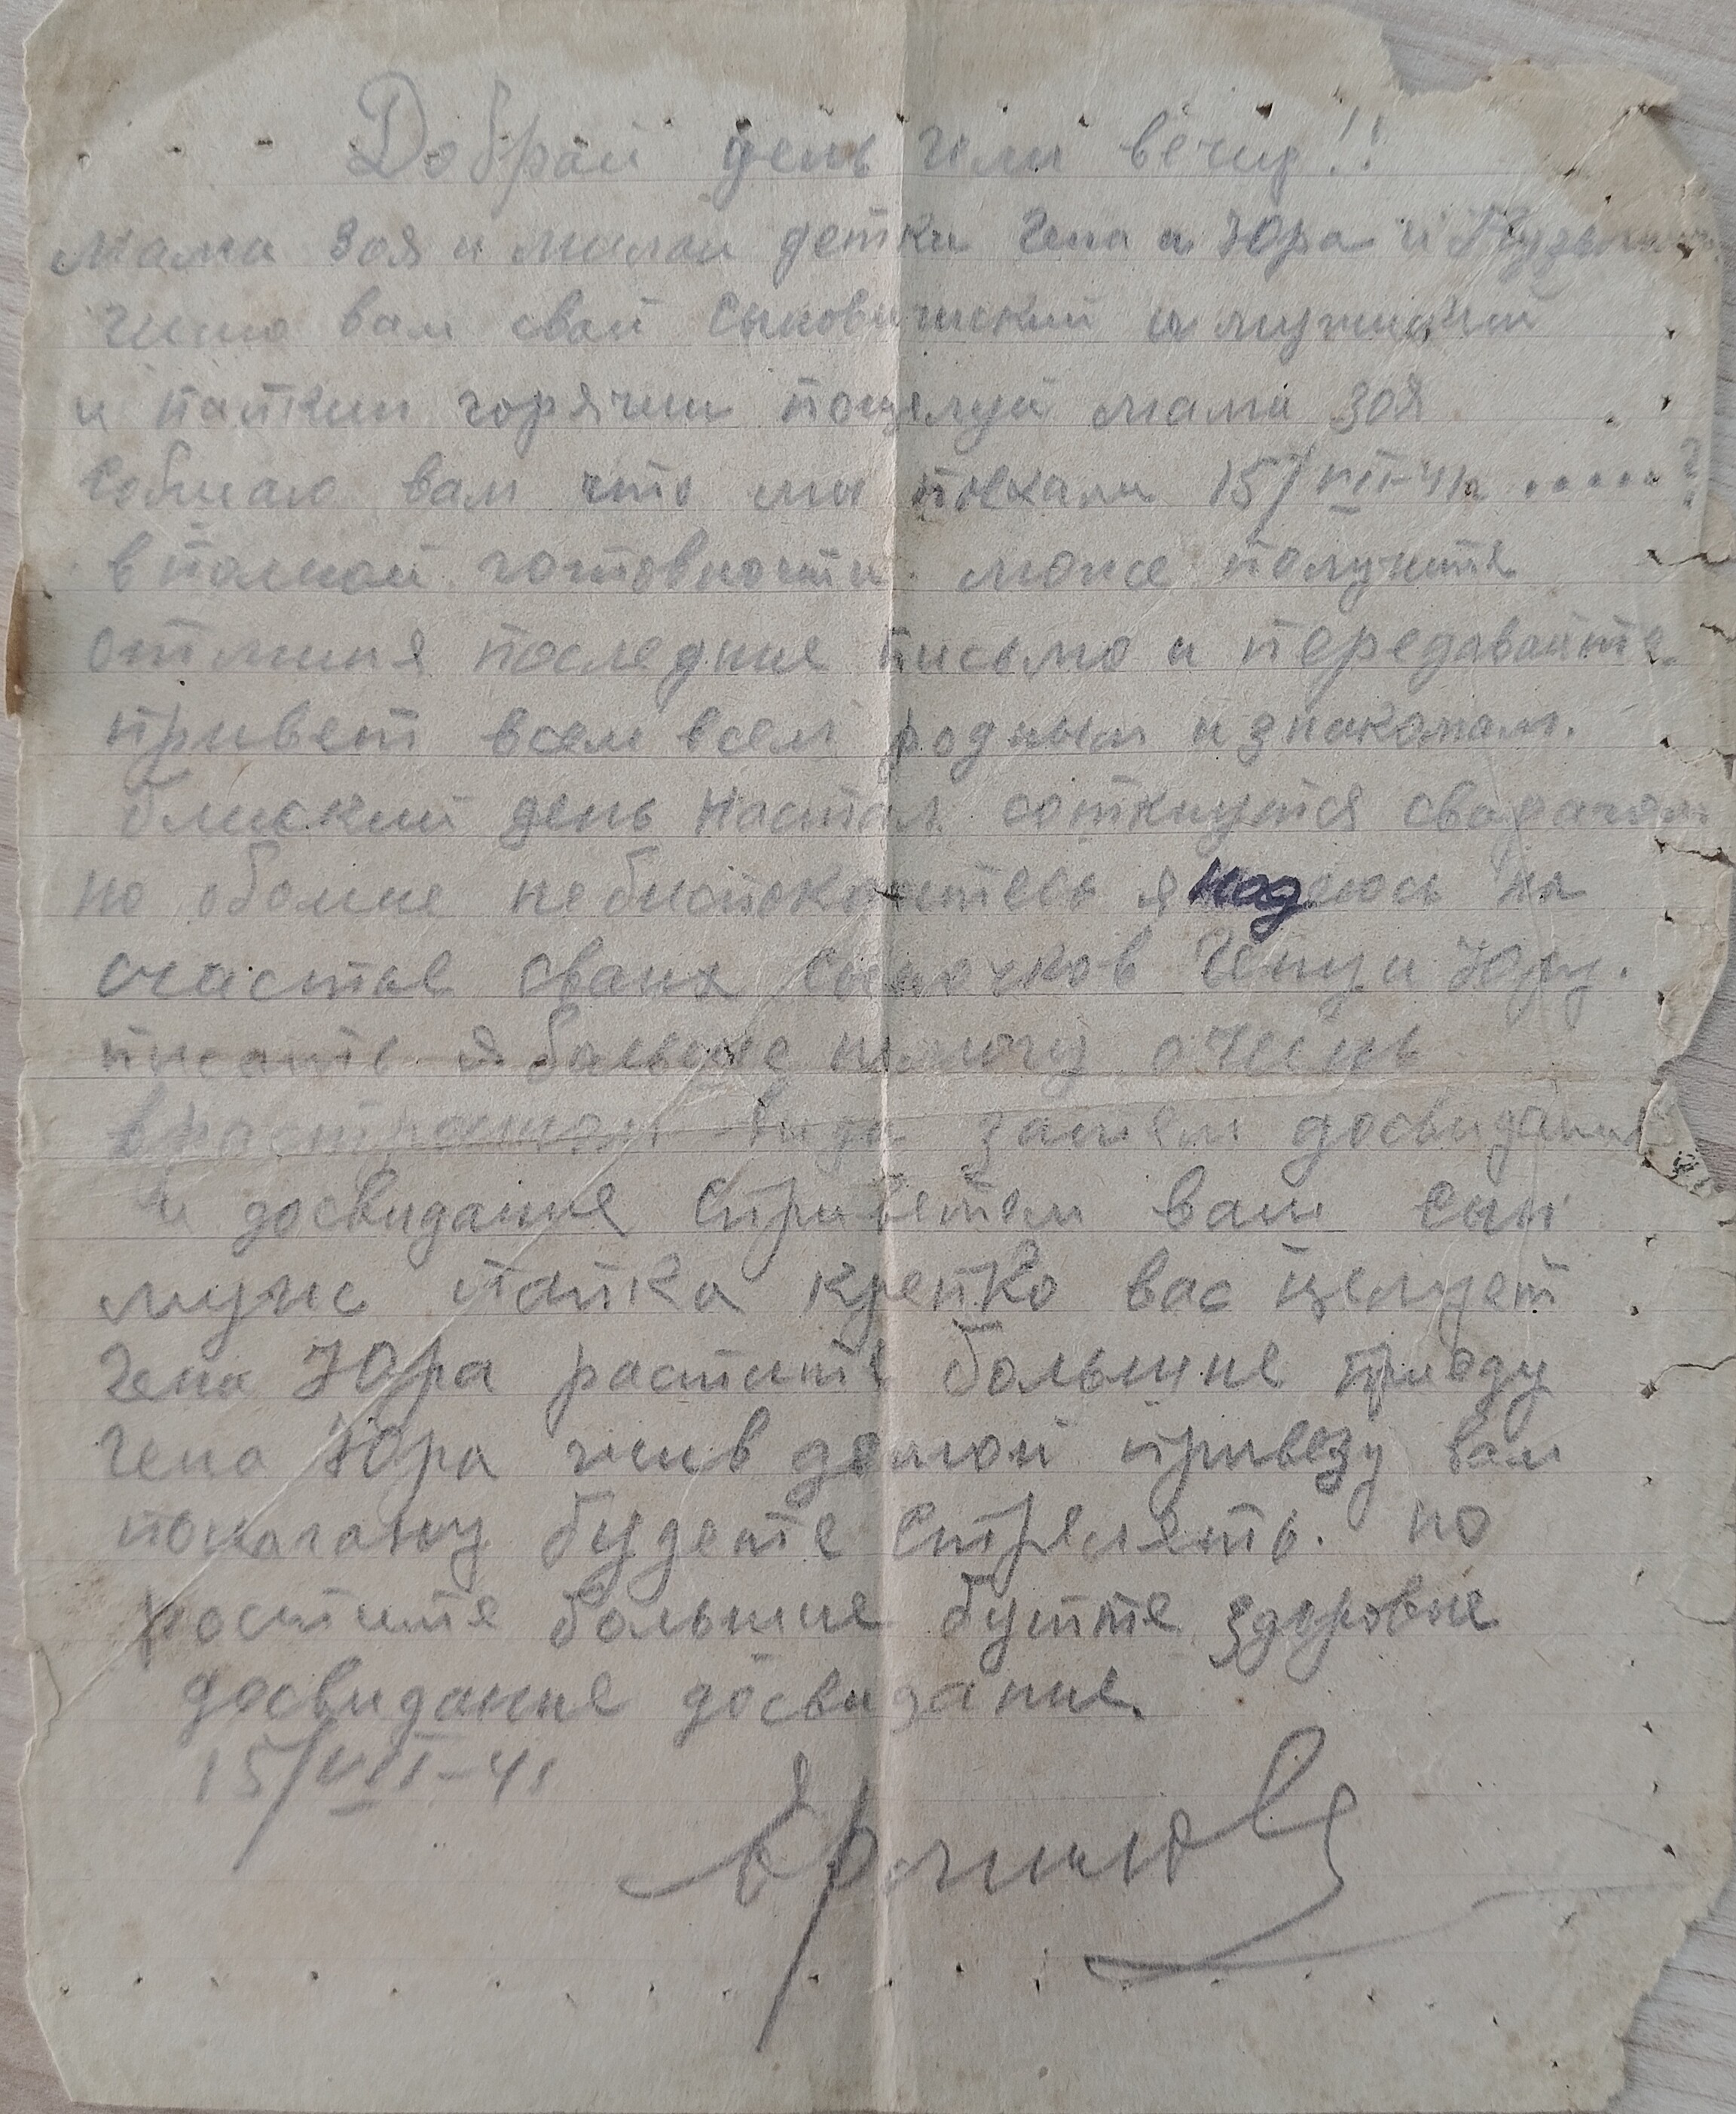 Добрай день или вечир!!
Мама Зоя и малаи детки Гена и Юра и
вам свой сыновический и мужнский
и папкин горячии поцелуй мама Зоя
собчаю вам што мы поехали 15/VIII-41г ..... ?
в полной готовности. може получите
отминя последние письмо и передавайте
привет всем всем родным и знакомам.
блиский день настал соткнутся
но обомне небиспокойтесь я надеюсь на
счастье сваих сыночков Гену и Юру.
писать я больше немогу очень
вида затем досвидание
и досвидание сприветам ваш сын
муж папка крепко вас целует
Гена Юра растите большие приеду
Гена Юра жив домой привезу вам
понагану будете стрелять. но
ростите большие бутте здоровые
досвидание досвидание.
15/VIII-41